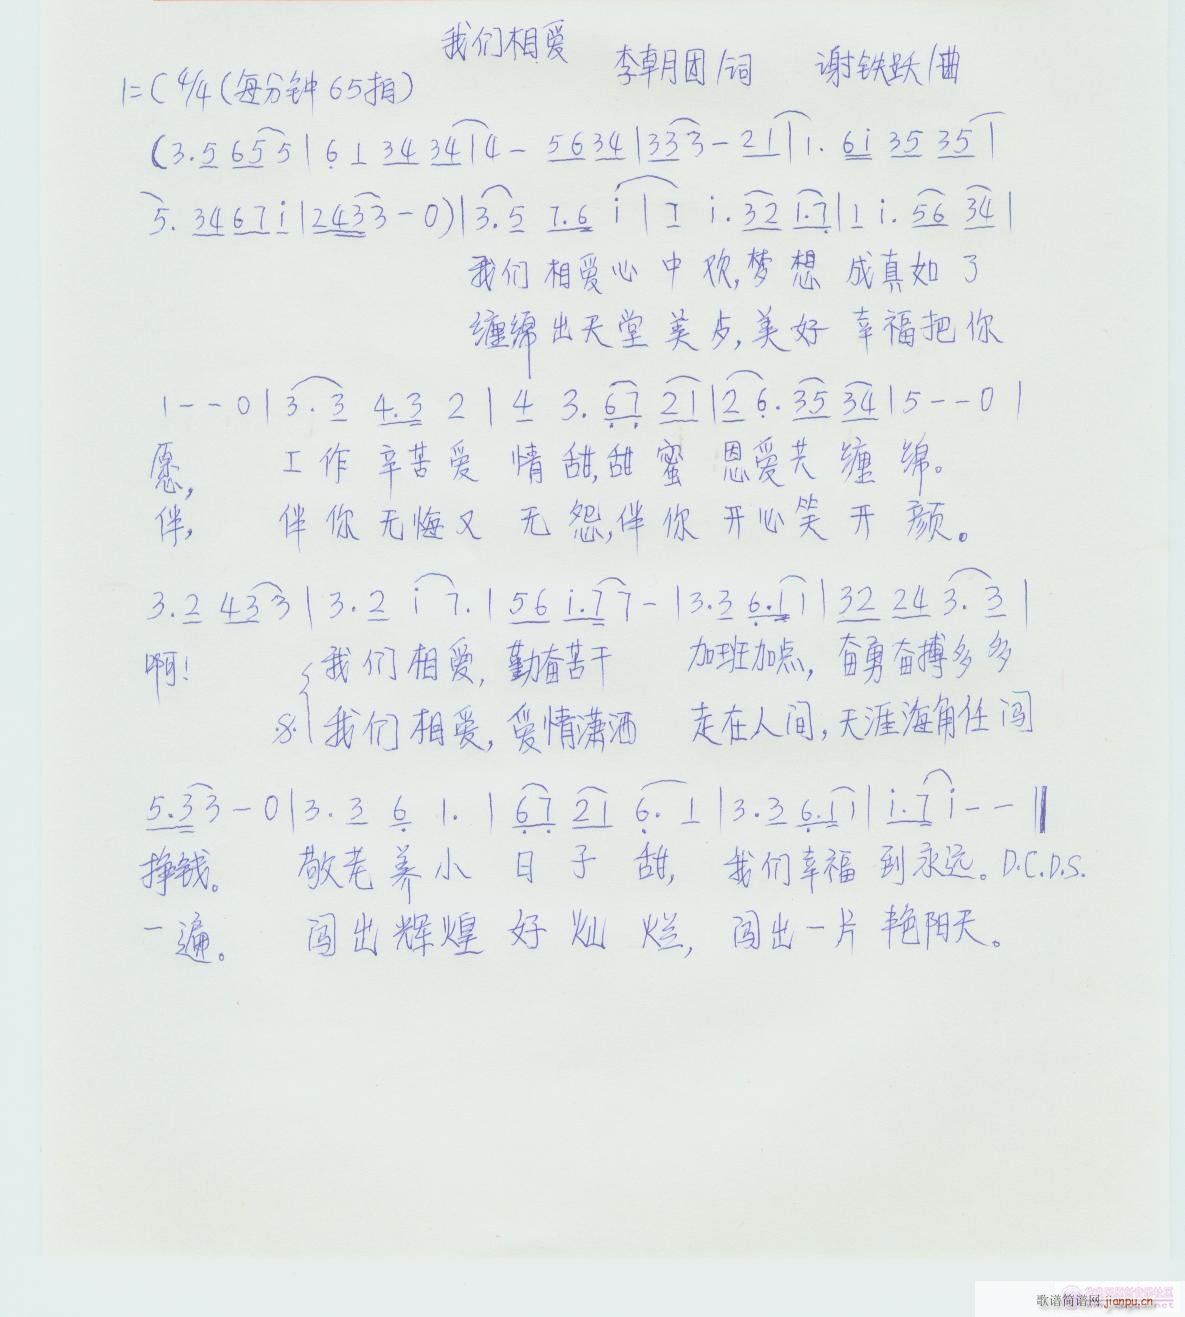 我们相爱
李朝团/词 谢铁跃/曲
1=C 4/4 (每分钟65拍)
(3.5 655|6 1 34 34|4 - 5634|333 - 21|1. 6i 35 35|
5. 3467i|2433 - 0)|3.5 7.6 i|i i.32 i.7|1 i. 56 34|
我们相爱心中欢,梦想 成真如了
缠绵出天堂美 美好 幸福把你
1 - - 0|3.3 4.3 2|4 3. 67 21|2 6. 35 34|5 - - 0|
愿, 工作辛苦爱 情甜,甜蜜 恩爱共缠绵。
伴, 伴你无悔又 无怨,伴你 开心笑开颜。
3.2 433|3.2 i 7.|56 i.77 -|3.3 6.11|32 24 3.3|
啊! 我们相爱, 勤奋苦干 加班加点, 奋勇奋搏多多
我们相爱, 爱情潇洒 走在人间, 天涯海角任闯
5.33 - 0|3.3 6 1.|67 21 6. 1|3.3 6.11|i.7 i - -‖
挣钱。 敬老养小 日子甜, 我们幸福到永远。D.C.D.S.
一遍。 闯出辉煌好灿烂, 闯出一片艳阳天。
歌谱简谱网 jianpu.cn